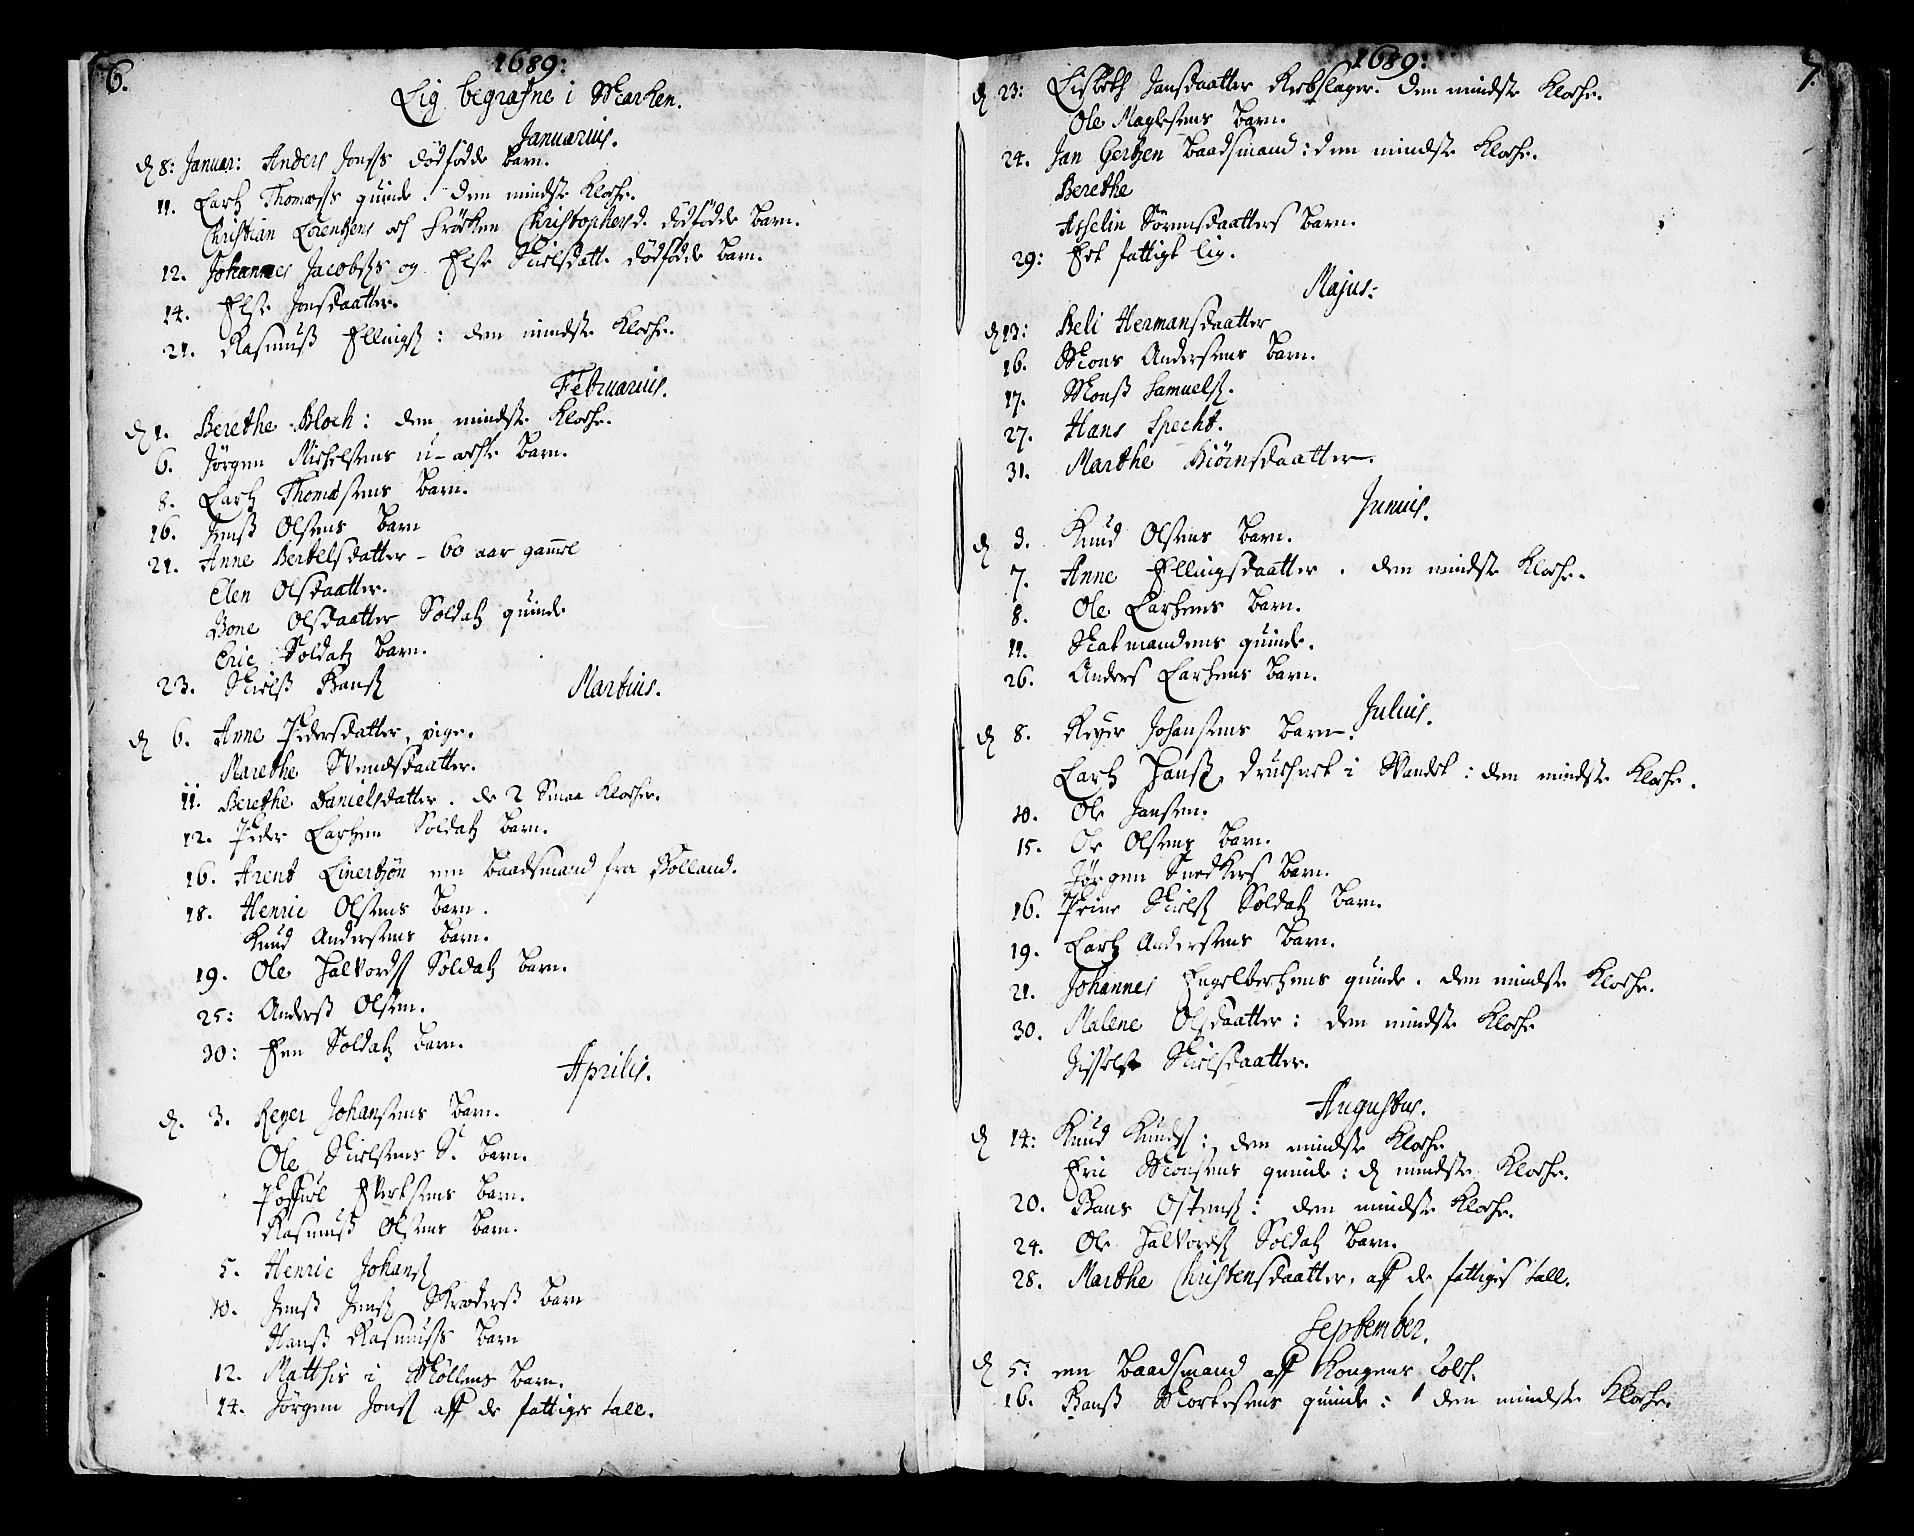 6.
1689:
Lig begrafne i Marken.
Januarius.
d 8: Januar: Anders Jenss dödfödde barn.
11. Lartz Thomæss quinde. den mindste Klocke.
Christian Lorentzens och Fröken Christophersd. dödfödde barn.
12. Johannes Jacobss og Else Nielsdatt. dödfödde barn.
14. Else Jensdaatter.
21. Rasmuss Ellings: den mindste Klocke.
Februarius.
d 1. Berethe Bloch: den mindste Klocke.
6. Jörgen Michelsens u-echte barn.
8. Lartz Thomæsens barn.
16. Jenss Olsens barn
21. Anne Bertelsdatter - 60 aar gamel
Elen Olsdaatter.
Bone Olsdaatter Soldatz quinde
Eric Soldatz barn.
23. Nielss Hans
Martius.
d 6. Anne Pedersdatter, pige.
Marethe Svendsdaatter.
11. Berethe Danielsdatter. de 2 Smaa Klocker.
12. Peder Larsen Soldatz barn.
16. Arent Linertzön en baadsmand fra Holland.
18. Henric Olsens barn.
Knud Andersens barn.
19. Ole Halvords Soldatz barn.
25: Anderss Olsen.
30: Een Soldatz barn.
Aprilis.
d. 3. Reyer Johansens barn.
Ole Nielsens S. barn.
Poffuel Evertsens barn.
Rasmuss Olsens barn.
5. Henric Johans
10. Jenss Jens Skræderss barn
Hanss Rasmuss barn
12. Matthis i Möllens barn.
14. Jörgen Jens aff de fattiges tall.
7.
1689:
d 23: Lisbeth Jansdaatter Rebslager. den mindste Klocke.
Ole Maglesens barn.
24. Jan Gertzen baadsmand: den mindste Klocke.
Berethe
Asselin Sörensdaatters barn.
29: Eet fattigt lig.
Majus:
d 13: Beli Hermansdaatter
16. Mons Andersens barn.
17. Monss Samuels.
27. Hans Specht.
31. Marthe Biörnsdaatter.
Junius.
d 3. Knud Olsens barn.
7. Anne Ellingsdaatter. den mindste Klocke.
8. Ole Larsens barn.
11. Natmandens quinde.
26. Anders Larsens barn.
Julius.
d 8. Reyer Johansens barn.
Lartz Hanss, drucknet i Vandet: den mindste Klocke.
10. Ole Jansen.
15. Ole Olsens barn.
Jörgen Snedkers barn.
16. Peine Niels Soldatz barn.
19. Lartz Andersens barn.
21. Johannes Engelbertsens quinde. den mindste Klocke.
30. Malene Olsdaatter: den mindste Klocke
Zissele Nielsdaatter.
Augustus.
d 14: Knud Knuds: den mindste Klocke
Eric Monsens quinde: d mindste Klocke.
20. Hans Ostens: den mindste Klocke.
24. Ole Halvords Soldatz barn.
28. Marthe Christensdaatter, aff de fattiges tall.
September.
d 5: een baadsmand aff Kongens
16. Hanss Mortesens quinde: den mindste Klocke.